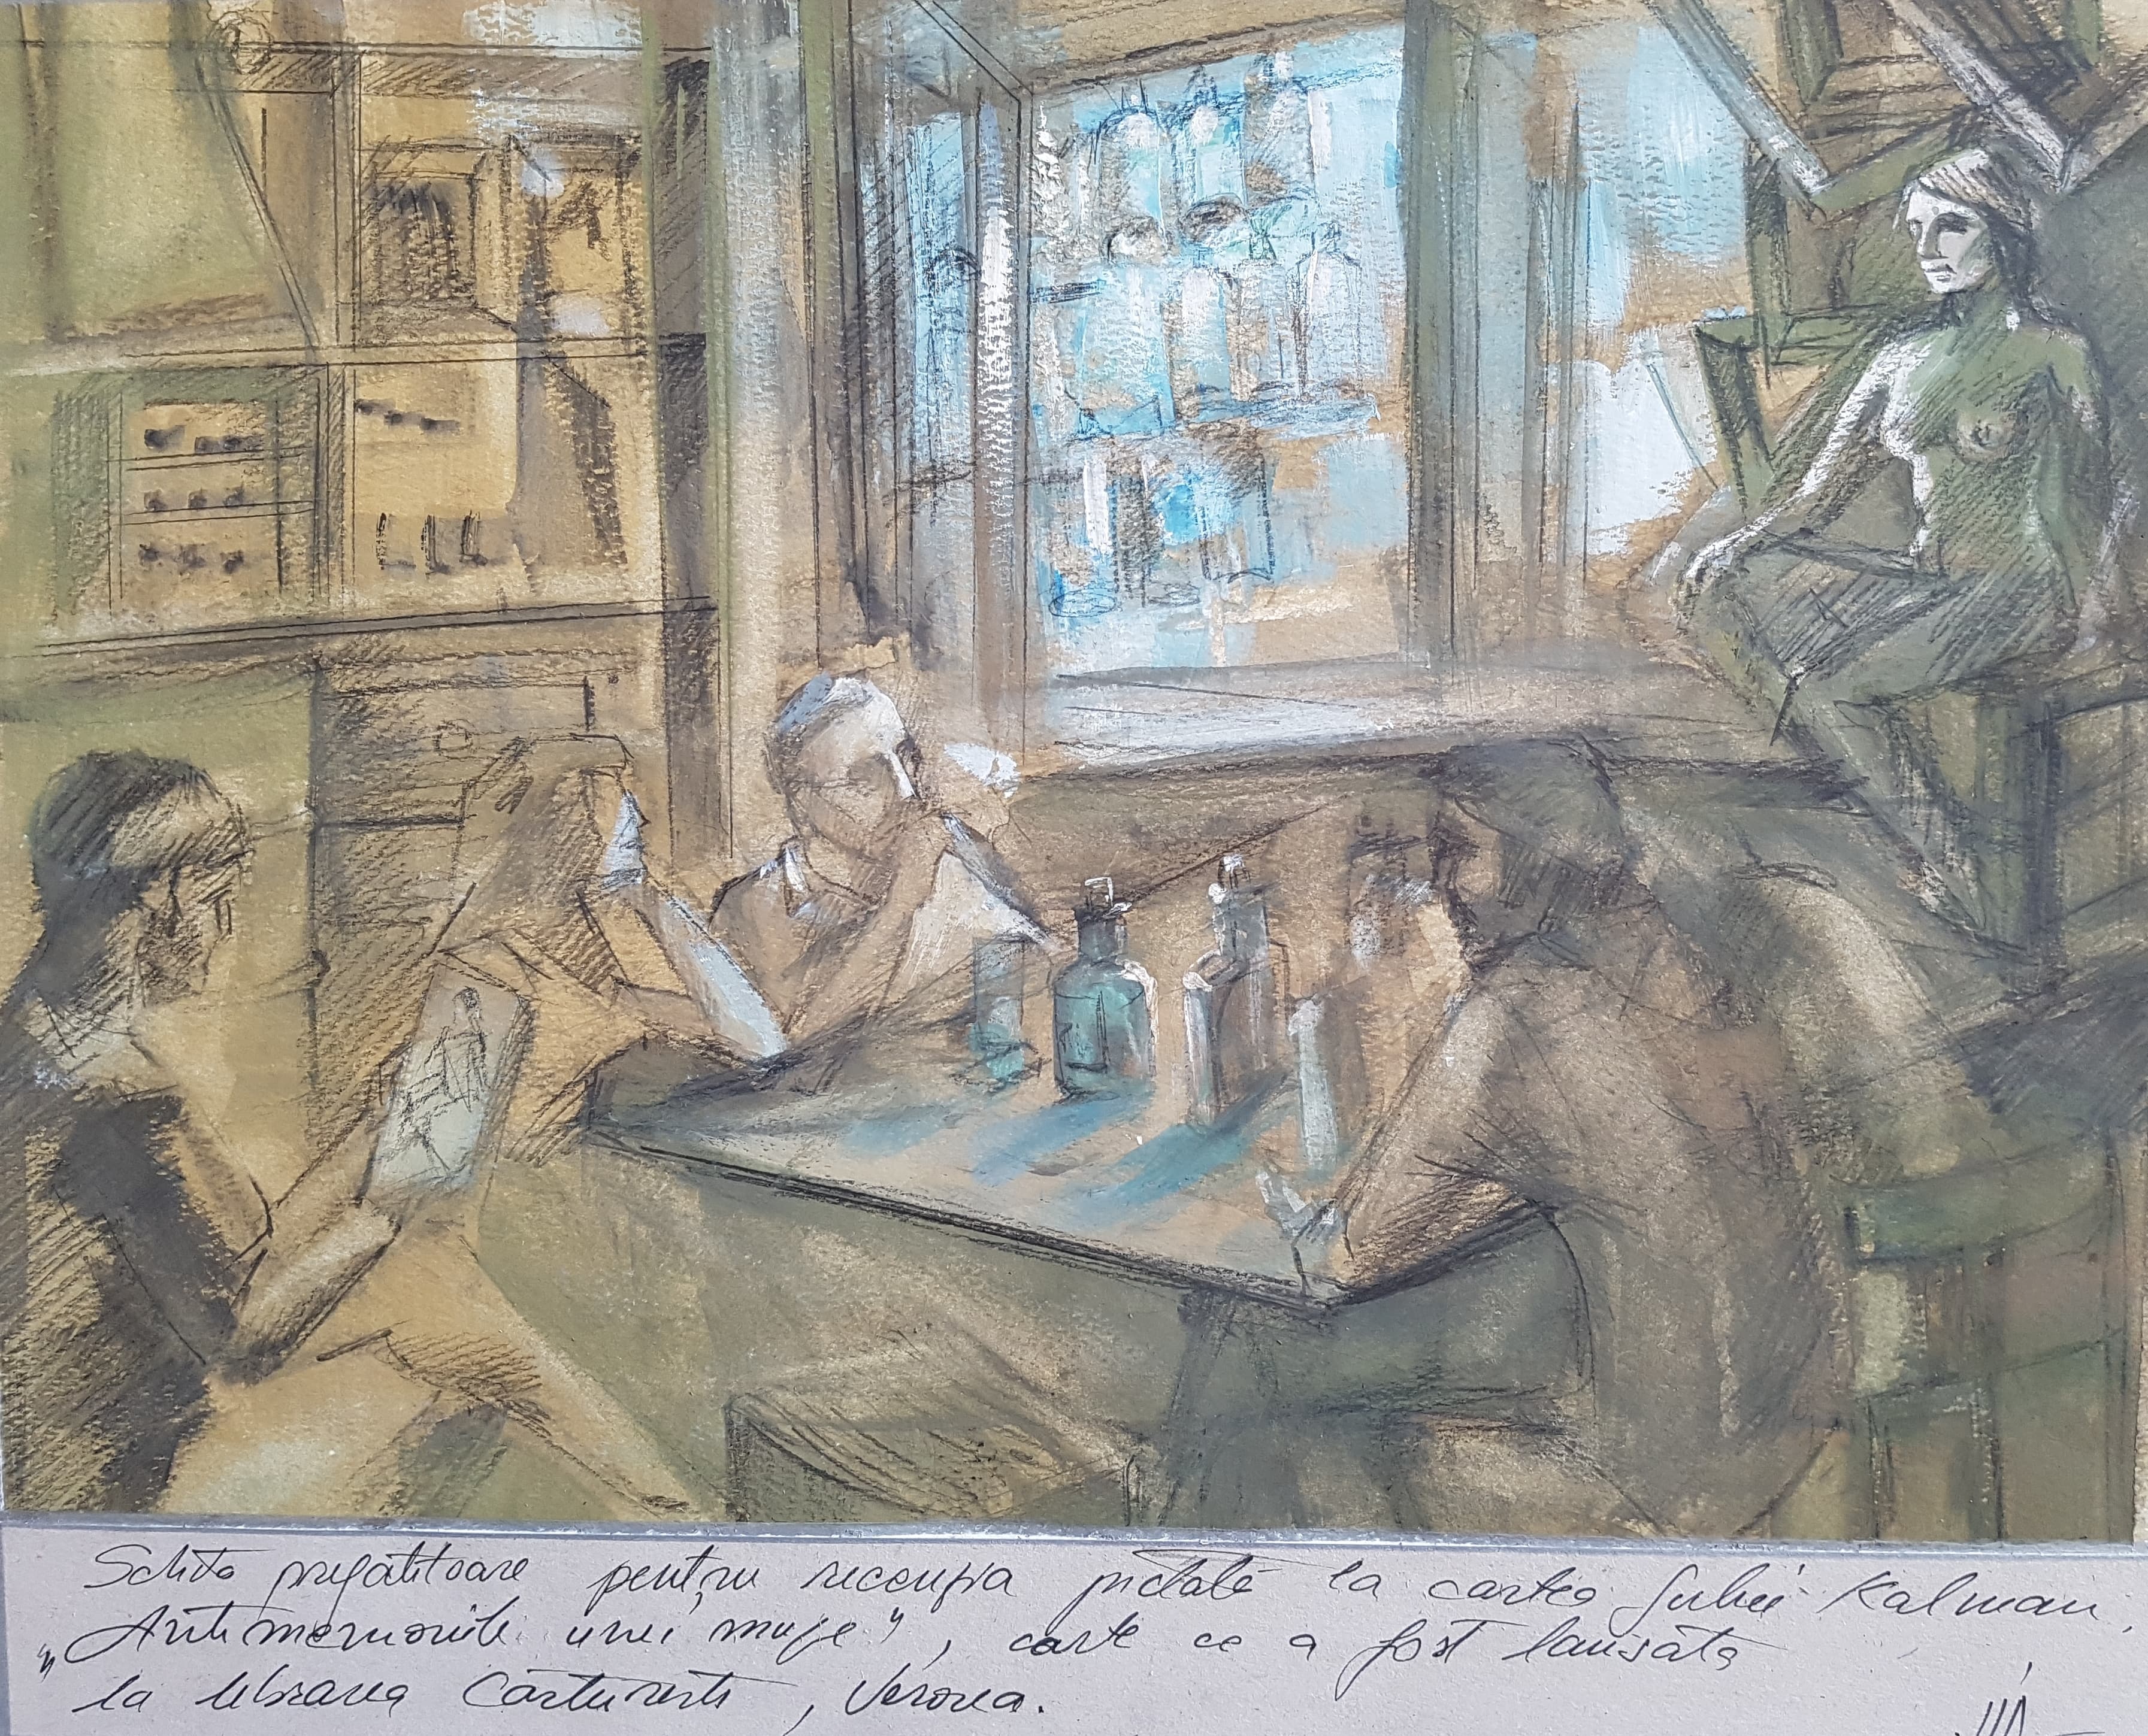 Schița pregătitoare pentru recenzia pictată la cartea Iuliei Kalman,
„Antimemoriile unei muze", carte ce a fost lansată
la librăria Cărturești, Verona.